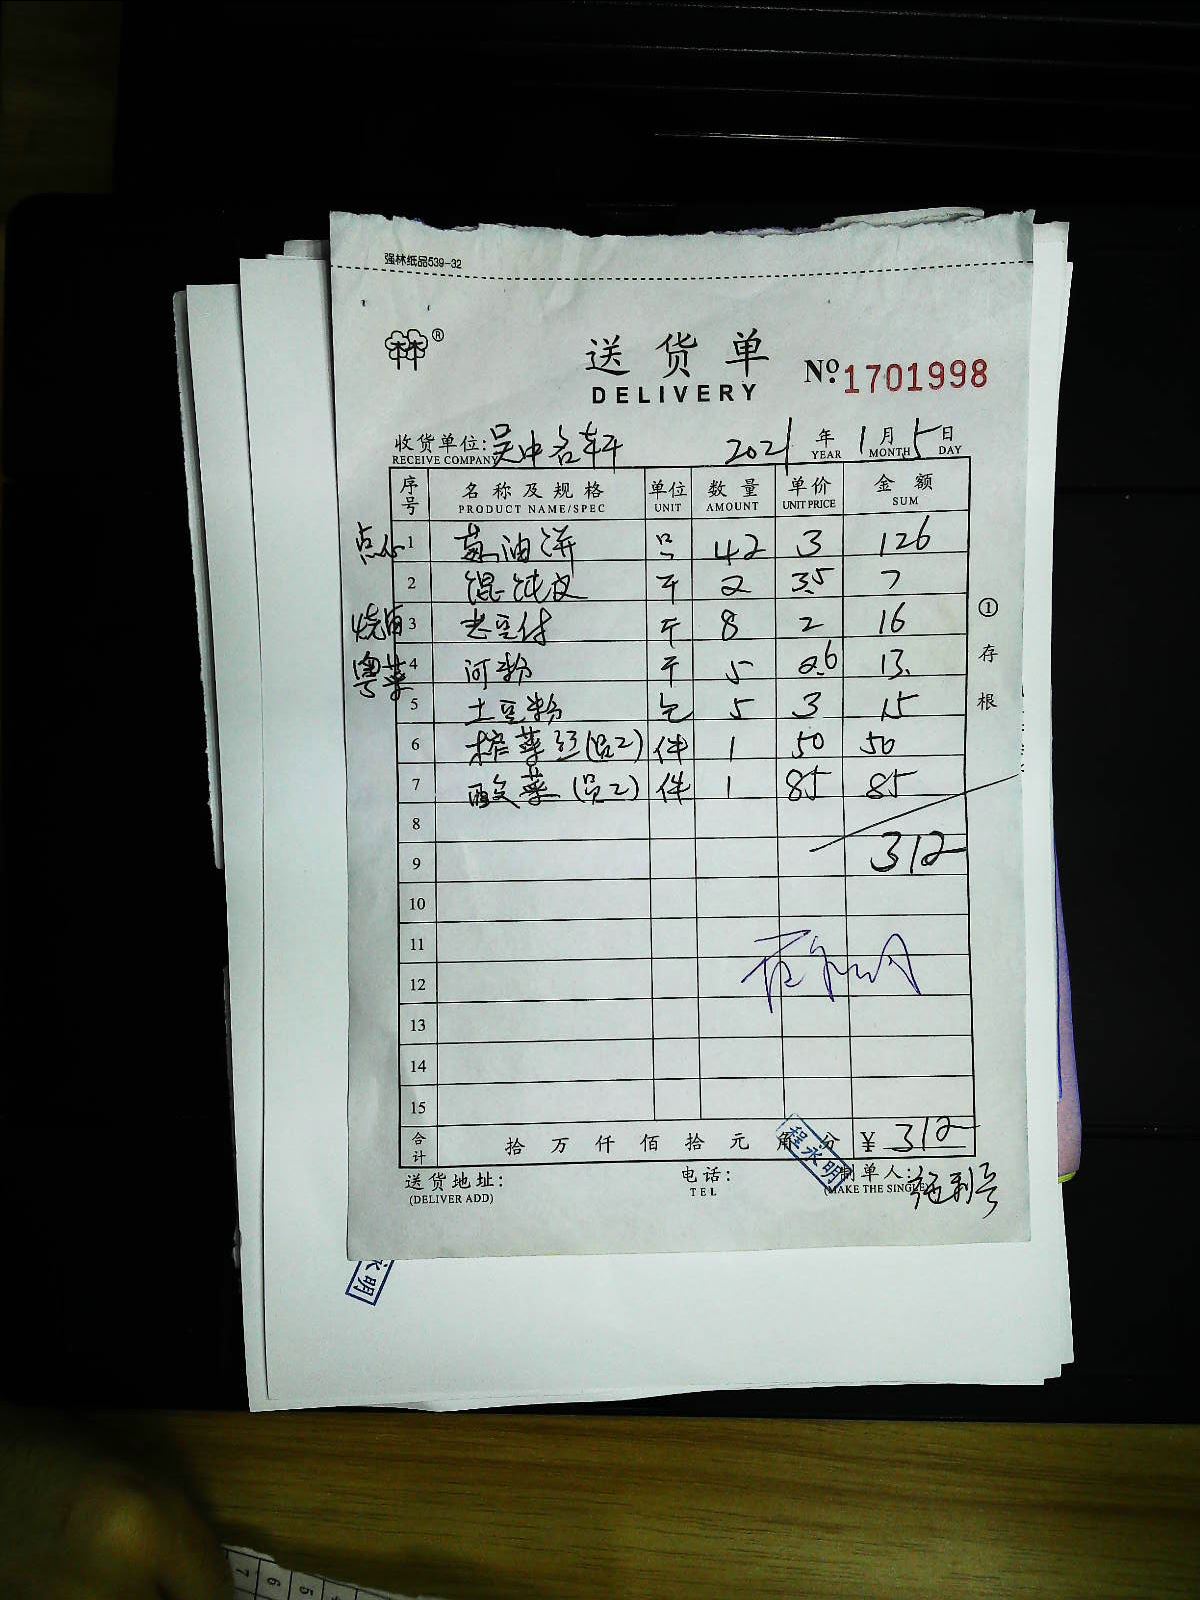 强林纸品539-32
林林®
送货单
DELIVERY
№ 1701998
收货单位: 吴中名轩 2021 年 1 月 5 日
RECEIVE COMPANY YEAR MONTH DAY
序号 名称及规格 单位 数量 单价 金额
PRODUCT NAME/SPEC UNIT AMOUNT UNIT PRICE SUM
点心 1 葱油饼 只 42 3 126
2 馄饨皮 斤 2 3.5 7
烧腊 3 老豆付 斤 8 2 16
粤菜 4 河粉 斤 5 2.6 13.
5 土豆粉 包 5 3 15
6 榨菜丝(员工) 件 1 50 50
7 酸菜(员工) 件 1 85 85
8
9 312
10
11
12
13
14
15
合计 拾 万 仟 佰 拾 元 角 分 ¥ 312
程永明
送货地址: 电话: 制单人:
(DELIVER ADD) TEL (MAKE THE SINGLE)
① 存根
永明
7 6 5